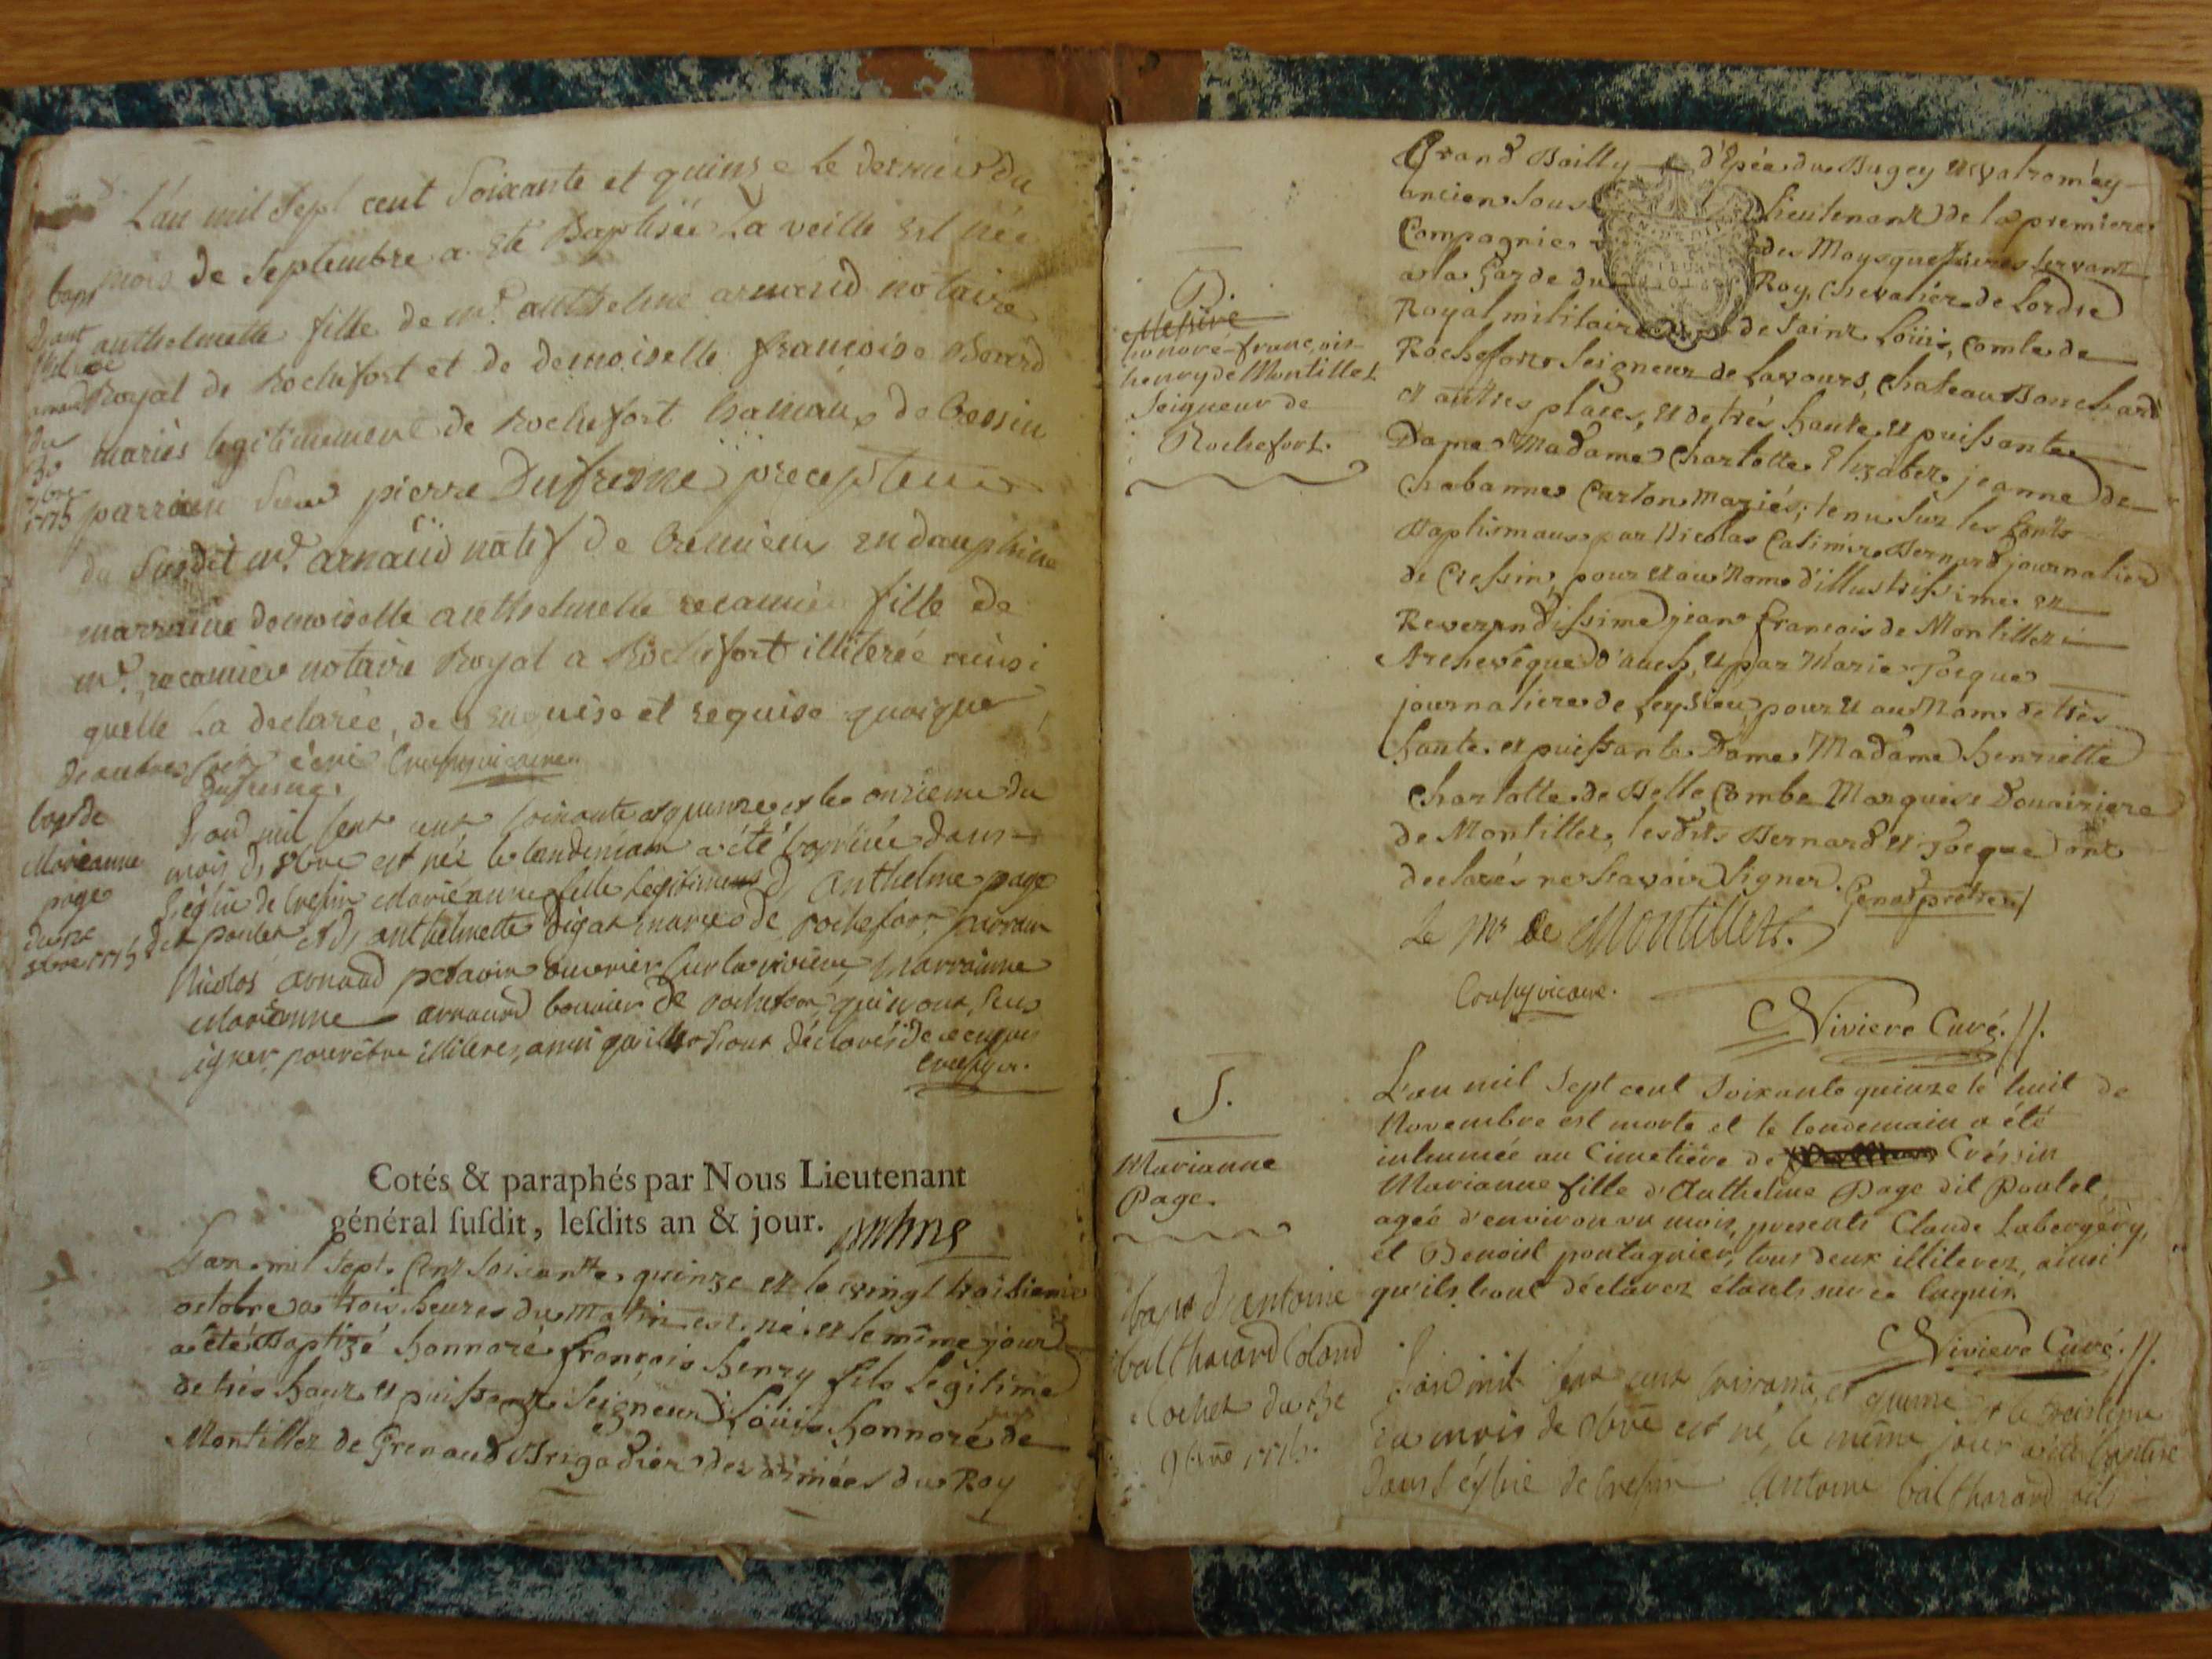 L'an mil Sept cent Soixante et quinse le dernier du
mois de Septembre a été Baptisée La veille est née
anthelmette fille de mr. anthelme arnaud notaire
Royal de Rochefort et de demoiselle françoise Berard
mariés legitimement de Rochefort hameau de Cressin
parrain Sieur pierre Dufresne precepteur
du Susdit mr. arnaud natif de Cremieux en dauphine
marraine demoiselle anthelmette recamier fille de
mr. recamier notaire Royal a Rochefort illiterée ainsi
quelle La declarée, de ce enquise et requise quoique
Dufresne.
bap de
Marieanne
page
du 12
8bre 1775
L'an mil sept cent soixante et quinze et le onzieme du
mois d 8bre est née le lendemain a été baptisée dans
l'église de Cressin Marieanne fille legitime d anthelme page
dit poulet et d anthelmette digat mariés de rochefort, parrain
Nicolas arnaud ouvrier sur la riviere, marrainne
Marieanne arnaud bouvier de rochefort, qui n'ont sceu
signer pour être illiteres, ainsi qu'ils ont déclarés de ce enquis
Cotés & paraphés par Nous Lieutenant
général ſuſdit, leſdits an & jour.
L'an mil Sept Cent soixante quinze et le vingt troisieme
octobre a trois heures du matin est né et le même jour
a été Baptizé honnoré françois henry fils légitime
de très haut et puissant Seigneur Loüis honnoré de
Montillet de Grenaud Brigadier des armées du Roy
B.
Messire
honoré-françois-
henry de Montillet
Seigneur de
Rochefort.
Grand Bailly d'Epée du Bugey et valromey
ancien sous Lieutenant de la premiere
Compagnie des Mousquetaires servant
a la Garde du Roy, chevalier de Lordre
Royal militaire de Saint Loüis, Comte de
Rochefort Seigneur de Lavours, Chateau Bouchard
et autres places, et de très haute et puissante
Dame Madame Charlotte Elizabet jeanne de
Chabannes Curton mariés; tenu sur les fonts
Baptismaux par Nicolas Casimir Bernard journalier
de Cressin, pour et au Nom d'illustrissime et
Reverendissime jean françois de Montillet
Archevêque d'auch, et par Marie Jocque
journaliere de Leyssieu, pour et au Nom de très
haute et puissante Dame Madame henriette
Charlotte de Belle Combe Marquise Douairiere
de Montillet, lesdits Bernard et Jocque ont
declarés ne scavoir signer. Genod prêtre
Le Mis de Montillet.
Vivier Curé.
S.
Marianne
Page.
L'an mil Sept cent Soixante quinze le huit de
Novembre est morte et le lendemain a été
inhumée au Cimetière de Créssin
Marianne fille d'Anthelme Page dit Poulet,
agée d'environ un mois, presents Claude Labergery,
et Benoist pontagnier, tous deux illiterez, ainsi
qu'ils l'ont déclarez étants sur ce Enquis.
Vivier Curé.
bap d antoine
balthazard
L'an mil sept cent soixante et quinze et le treizieme
du mois de 9bre est né, le même jour a été baptisé
dans l'église de Cressin Antoine balthazard fils